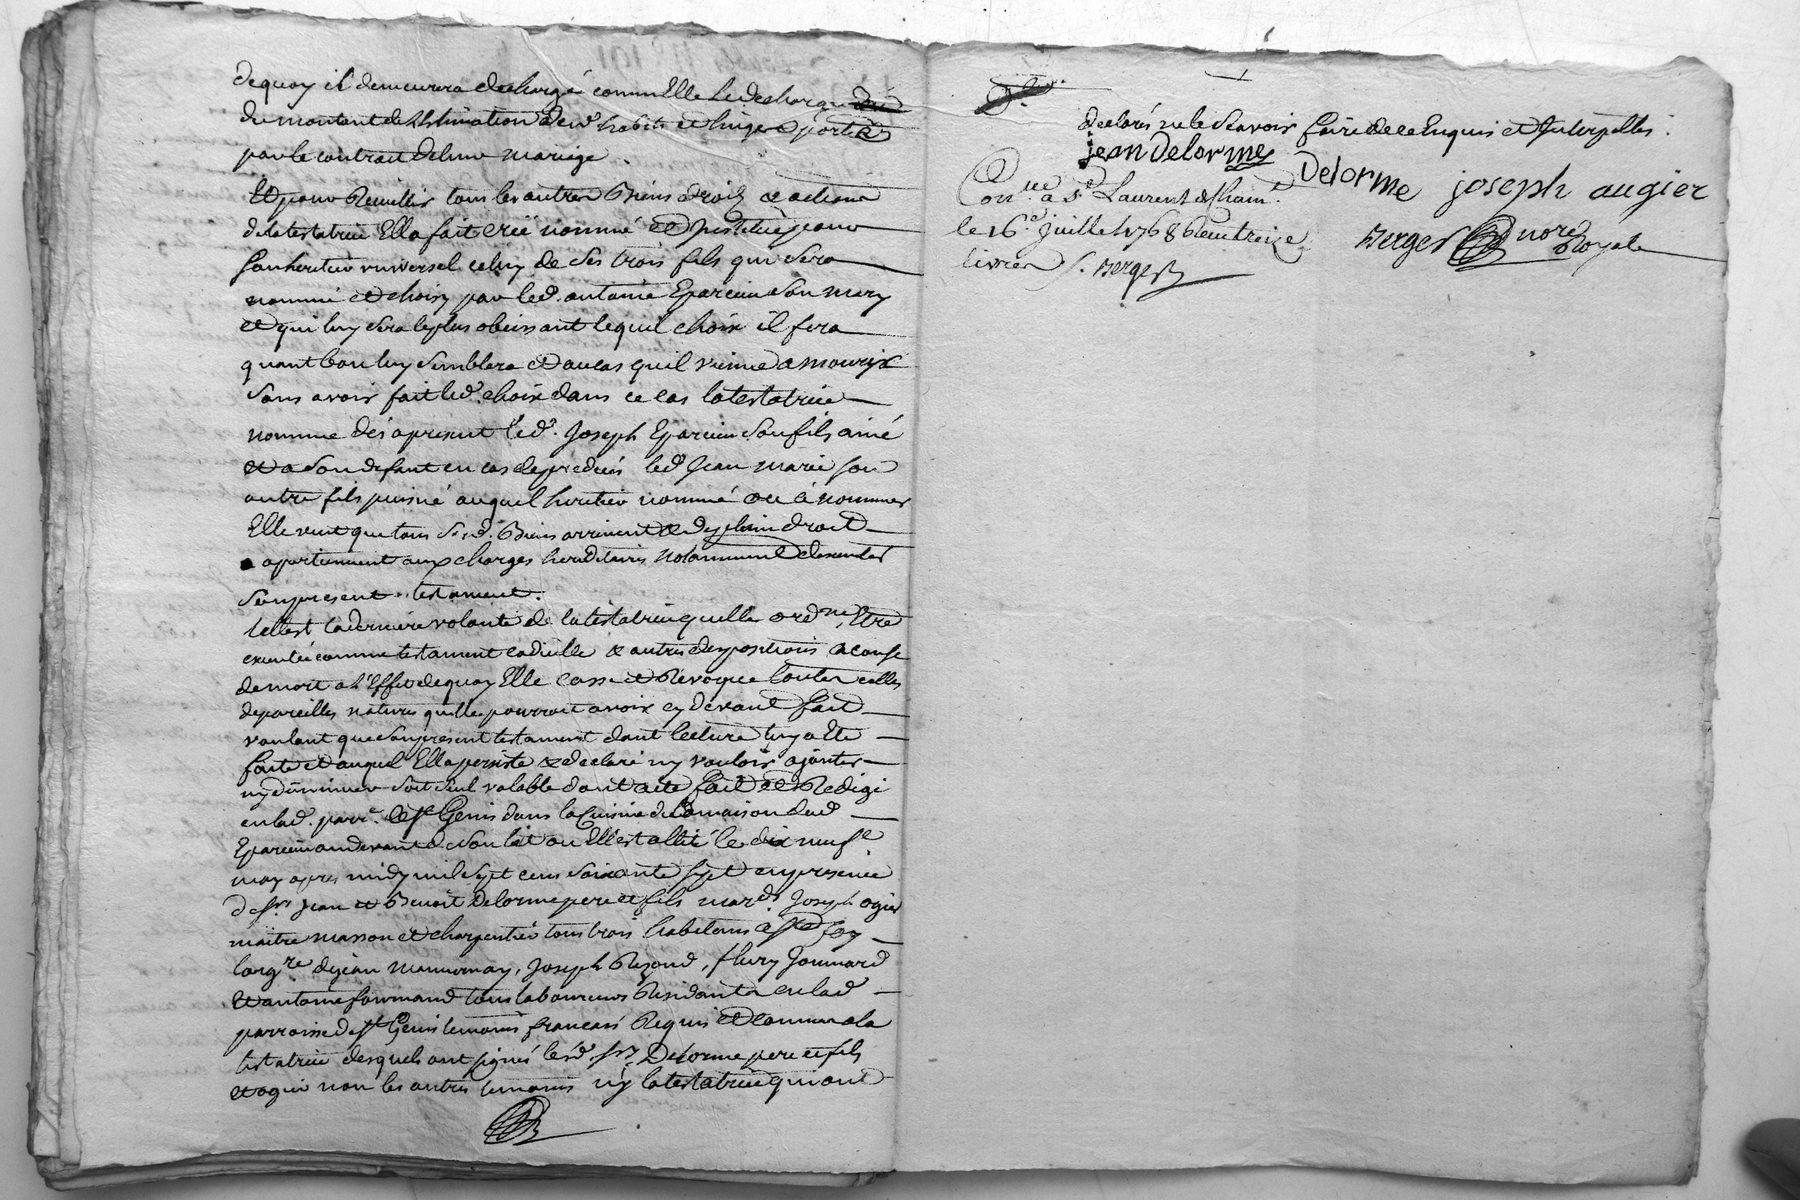 dequoy il demeurera dechargé comm Elle le decharge
du montant de l'Estimation de ses habits et linges portée
par le contrat de leur mariage.
Et pour Recuillir tous les autres Biens droits et actions
de la testatrice Ella fait créé nommé et Institué pour
son heritier universel celuy de ses trois fils qui sera
nommé et choisy par led. antoine Eparcieu son mary
et qui luy sera le plus obeissant lequel choix il fera
quant bon luy semblera et aucas quil vienne a mourir
sans avoir fait led. choix dans ce cas la testatrice
nomme dès apresent led. Joseph Eparcieu son fils ainé
et a son defaut en cas de predecés led. Jean marie son
autre fils puisné auquel heritier nommé ou à nommer
Elle veut que tous sesd. Biens arrivent et de plein droit
apartiennent aux charges hereditaires notamment dexecuter
son present testament.
Telle est la derniere volonté de la testatrice quelle ordne. Etre
executée comme testament codicille et autres dispositions a cause
de mort a l'Effet dequoy Elle casse et Révoque toutes celles
de pareilles natures quelle pourroit avoir cy devant fait
voulant que son present testament dont lecture luy a Eté
faite et auquel Ella persiste et declaré n'y vouloir ajouter
ny diminuer soit seul valable dont acte fait et Redigé
en lad. parre. de st Genis dans la Cuisine de la maison dud.
Eparcieu au devant de son lit ou Elle est allité le dix neufe
may apres midy mil sept cens soixante sept en presence
de srs Jean et Benoit Delorme pere et fils mards Joseph ogier
maitre masson et charpentier tous trois habitans a ste foy
largre de jean manurnay, Joseph Rigoud, fleury Joumard
et antoine formand tous laboureurs Residants en lad.
parroisse de st Genis temoins francais Requis et connu de la
testatrice desquels ont signés lesd. srs Delorme pere et fils
et ogier non les autres temoins n'y la testatrice qui ont
declarés ne le scavoir faire de ce Enquis et Interpellés.
jean Delorme Delorme joseph augier
Conllé. a st. Laurent de Cham.
le 16e juillet 1768 Reçu treize
livres s. Berger
Berger nore Royale